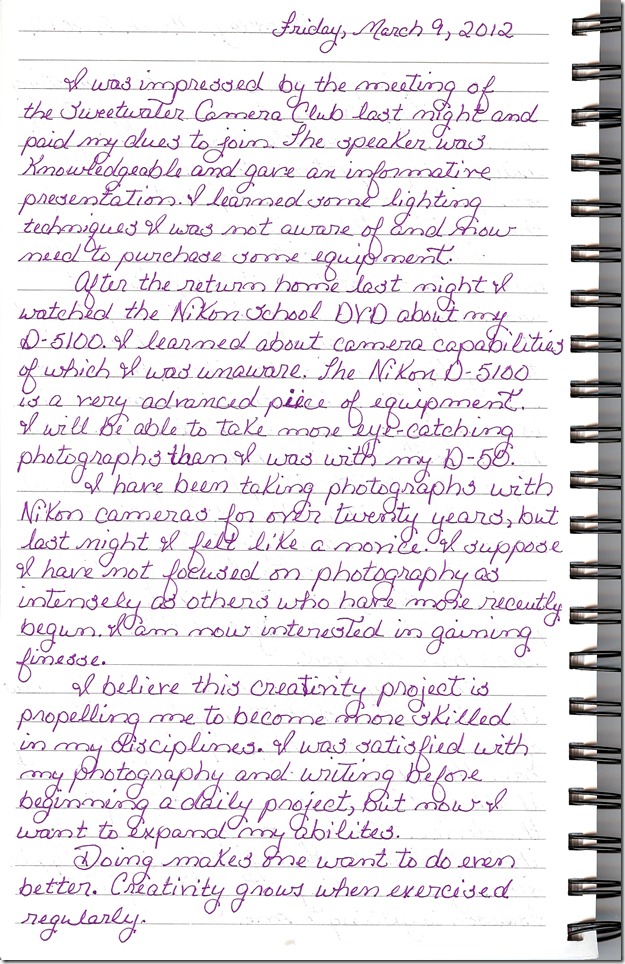 Friday, March 9, 2012
I was impressed by the meeting of
the Sweetwater Camera Club last night and
paid my dues to join. The speaker was
knowledgeable and gave an informative
presentation. I learned some lighting
techniques I was not aware of and now
need to purchase some equipment.
After the return home last night I
watched the Nikon School DVD about my
D-5100. I learned about camera capabilities
of which I was unaware. The Nikon D-5100
is a very advanced piece of equipment.
I will be able to take more eye-catching
photographs than I was with my D-50.
I have been taking photographs with
Nikon cameras for over twenty years, but
last night I felt like a novice. I suppose
I have not focused on photography as
intensely as others who have more recently
begun. I am now interested in gaining
finesse.
I believe this creativity project is
propelling me to become more skilled
in my disciplines. I was satisfied with
my photography and writing before
beginning a daily project, but now I
want to expand my abilites.
Doing makes one want to do even
better. Creativity grows when exercised
regularly.